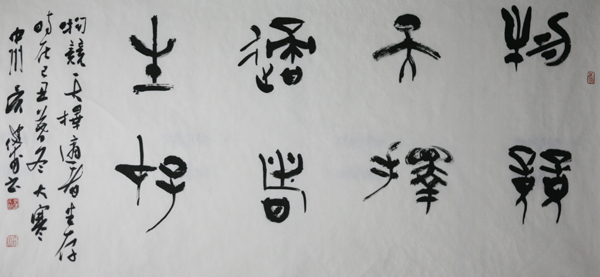 物競
天擇
適者
生存
物競天擇適者生存
時在己丑暮冬大寒
中州